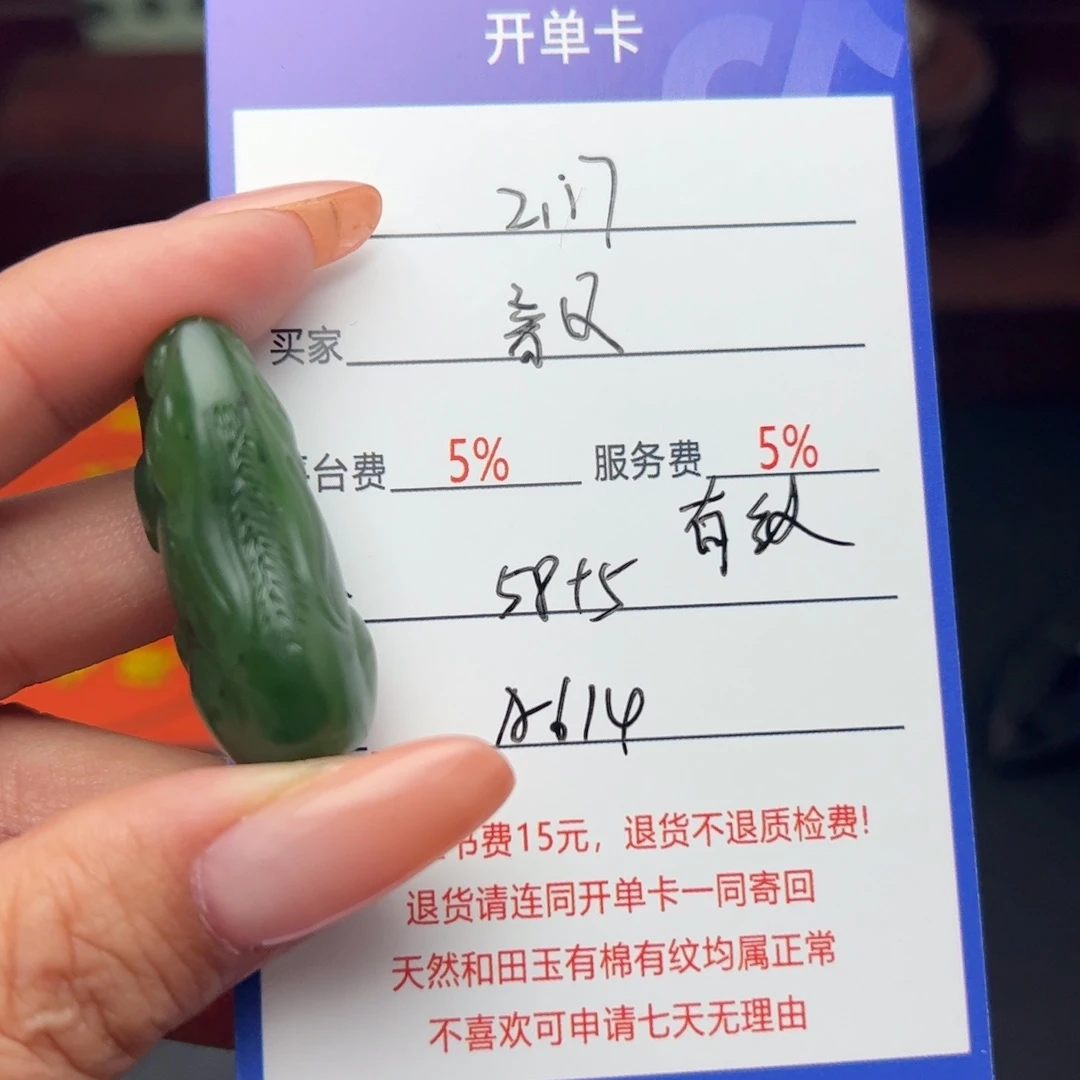 开单卡
2.17
买家
台费 5% 服务费 5%
有纹
58+5
614
书费15元，退货不退质检费！
退货请连同开单卡一同寄回
天然和田玉有棉有纹均属正常
不喜欢可申请七天无理由